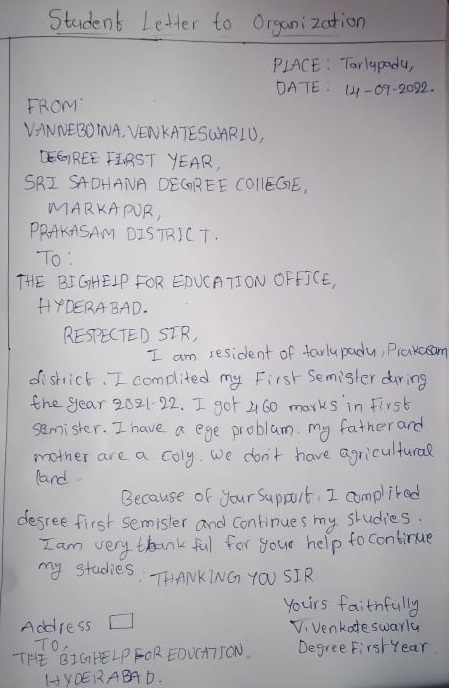 Student Letter to Organization
PLACE: Tarlupadu,
DATE: 14-09-2022.
FROM
VANNEBOINA. VENKATESWARLU,
DEGREE FIRST YEAR,
SRI SADHANA DEGREE COllEGE,
MARKAPUR,
PRAKASAM DISTRICT.
To:
THE BIGHElP FOR EDUCATION OFFICE,
HYDERABAD.
RESPECTED SIR,
I am resident of tarlupadu, Prakasam
district. I complited my First Semister during
the year 2021-22. I got 460 marks in First
Semister. I have a eye problam. my father and
mother are a coly. we don't have agricultural
land.
Because of your Support. I complited
desree first semister and continues my studies.
I am very thank ful for your help to continue
my studies.
THANKING YOU SIR
Yoirs faithfully
V. Venkateswarlu
Degree First Year
Address
TO,
THE BIGHELP FOR EDUCATION.
HYDERABAD.